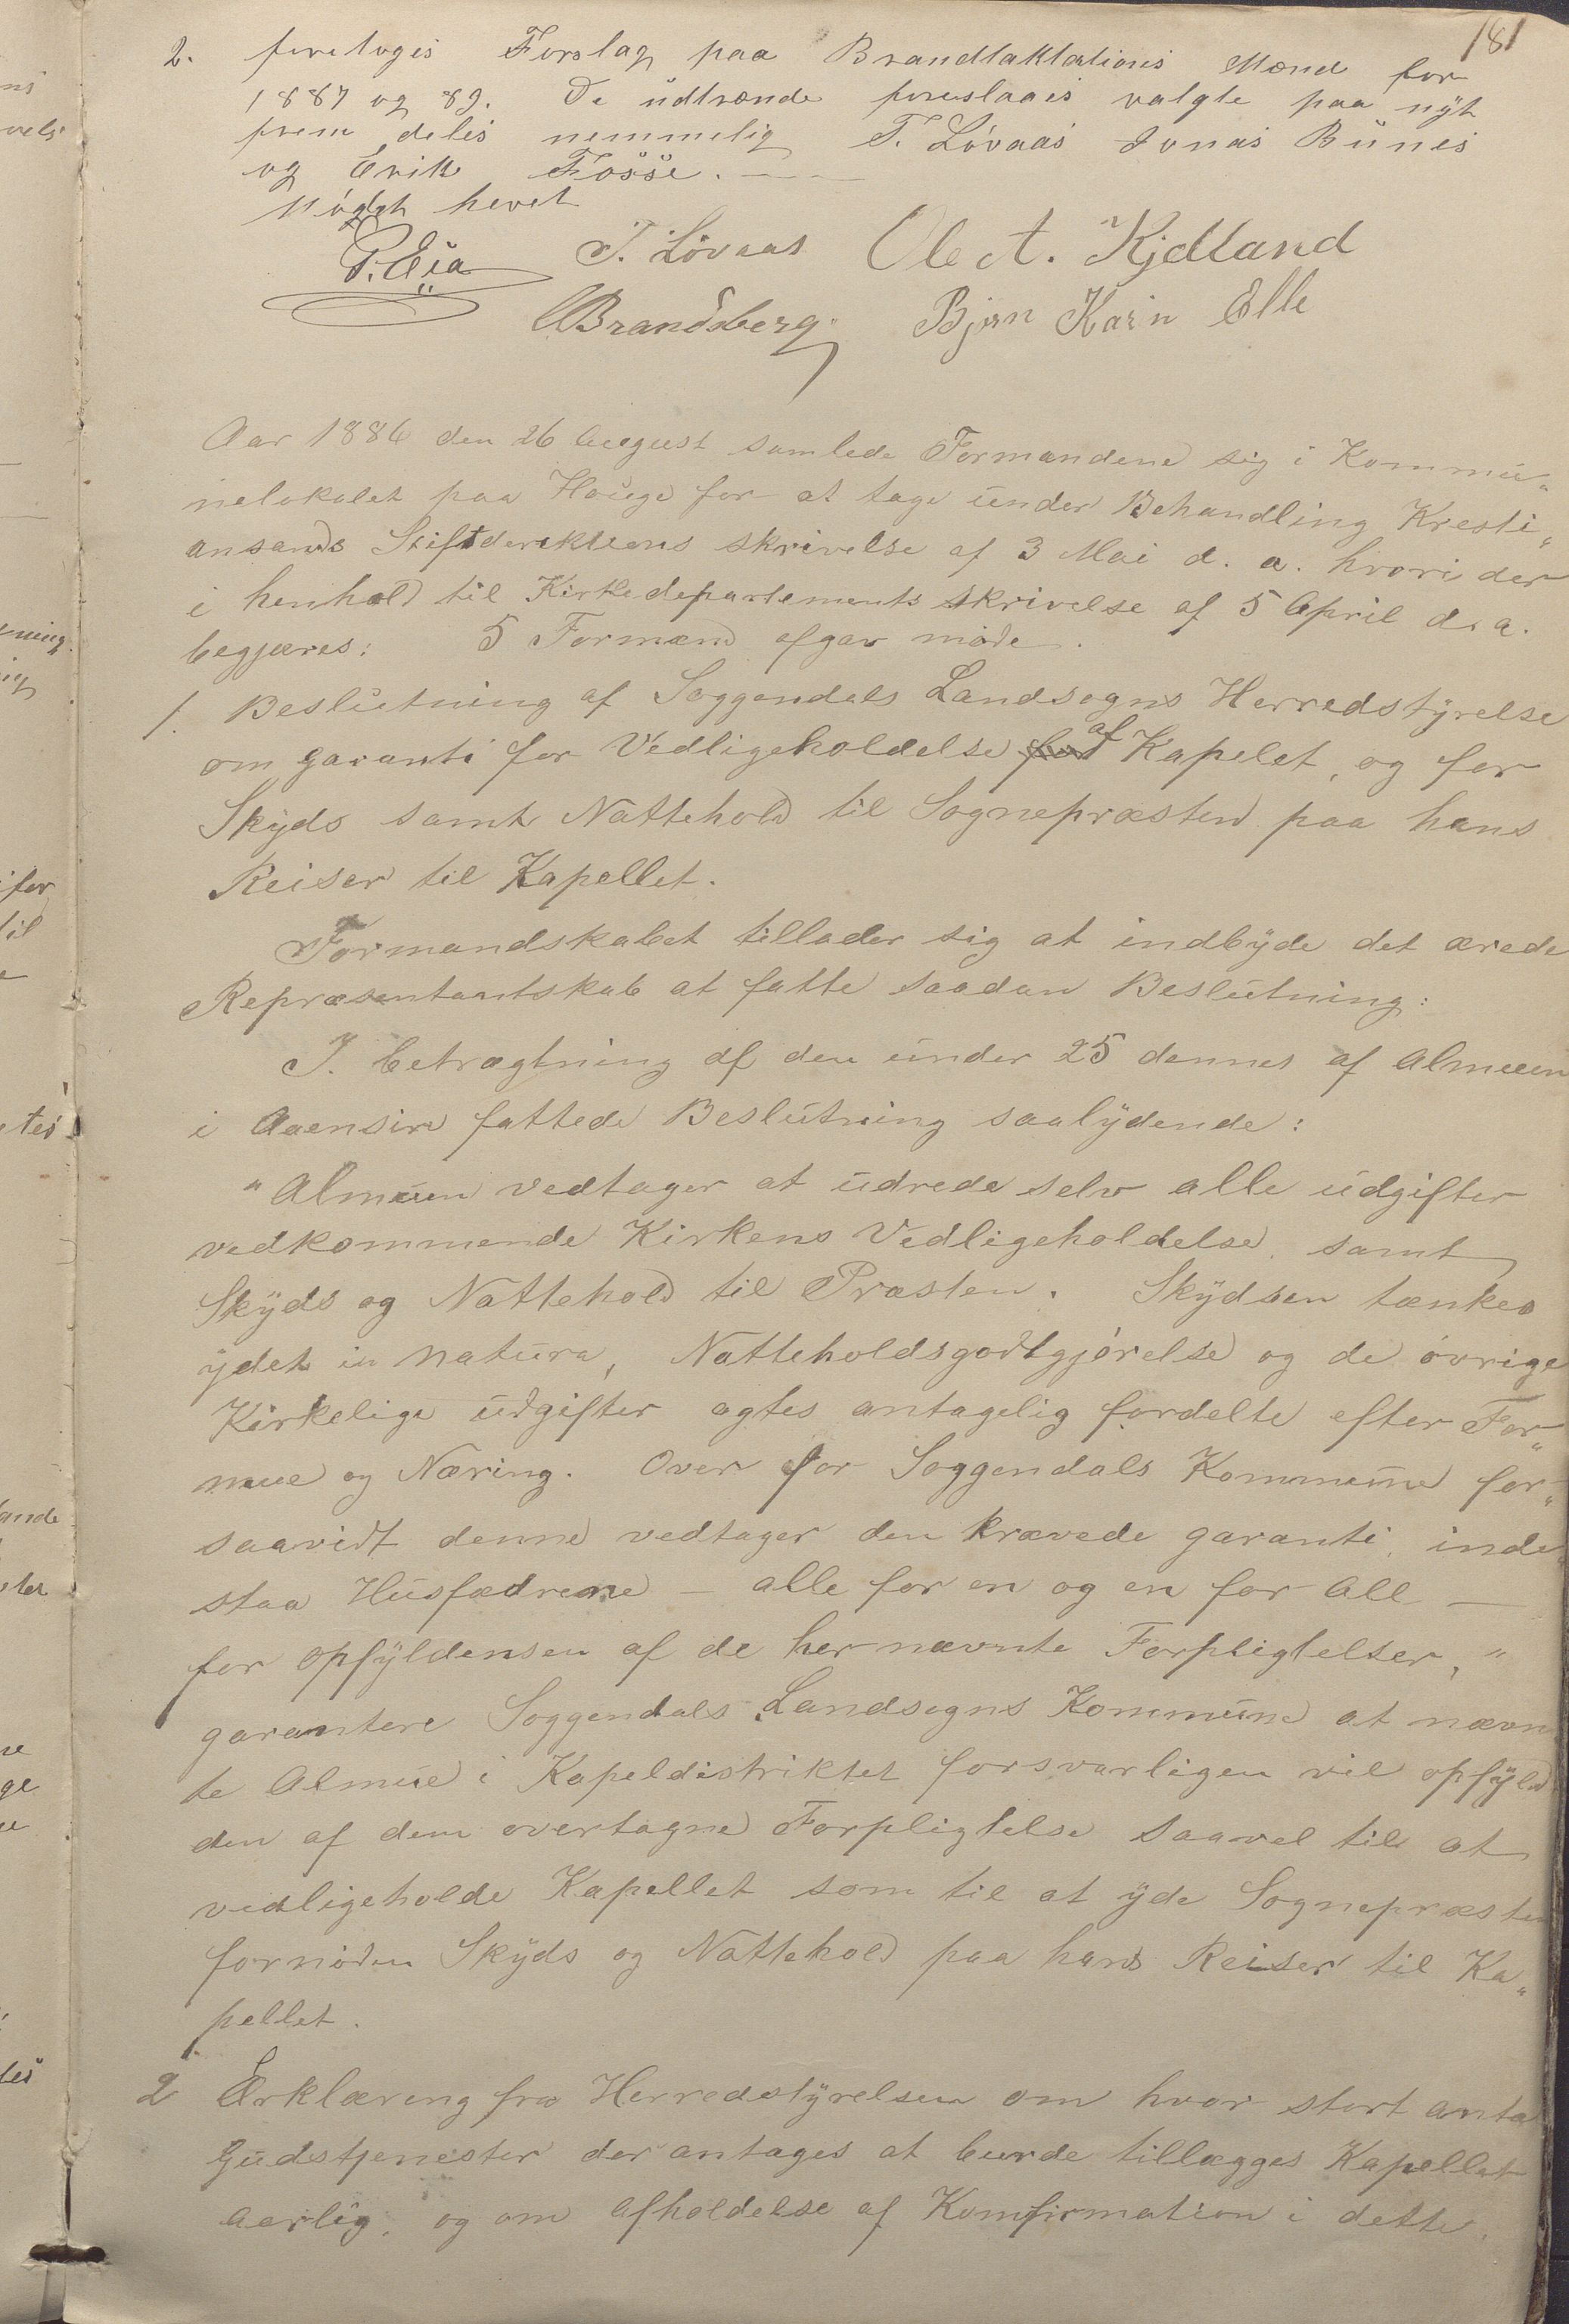 181
2. foretoges Forslag paa Brandtaktations Mænd for
1887 og 89. De üdtrænde foreslaaes valgte paa nÿt
frem deles nemmelig T. Lövaas Jonas Bünes
og Erik Fosse.
Mödet hevet
P. Eia T. Lövaas Ole A. Kjelland
Brandsberg Bjørn Karin Elle
Aar 1886 den 26 August samlede Formandene sig i Kommü„
nelokalet paa Haüge for at tage ünder Behandling Kresti„
ansands Stiftderektions skrivelse af 3 Mai d. a. hvori der
i henhold til Kirkedepartements skrivelse af 5 April d. a.
begjæres: 5 Formænd afgav möde.
1. Beslütning af Soggendals Landsogns Herredstÿrelse
om garanti for Vedligeholdelse af Kapelet, og for
Skÿds samt Nattehold til Sognepræsten paa hans
Reiser til Kapellet.
Formandskabet tillader sig at indbÿde det ærede
Repræsentantskab at fatte saadan Beslütning:
I. betragtning af den ünder 25 dennes af Almuen
i Aaensire fattede Beslütning saalÿdende:
"Almüen vedtager at üdrede selv alle üdgifter
vedkommende Kirkens Vedligeholdelse, samt
Skÿds og Nattehold til Præsten. Skÿdsen tænkes
ÿdet in natüra, Natteholdsgodtgjörelse og de övrige
Kirkelige üdgifter agtes antagelig fordelte efter For„
mue og Næring. Over for Soggendals Kommüne for„
saavidt denne vedtager den krævede garanti, inde„
staa Hüsfædrene – alle for en og en for all –
for opfÿldensen af de her nævnte Forpligtelser,"
garantere Soggendals Landsogns Kommüne at nævn
te Almüe i Kapeldistriktet forsvarligen vil opfÿld
den af dem overtagne Forpligtelse saavel til at
vedligeholde Kapellet som til at ÿde Sognepræsten
fornöden Skÿds og Nattehold paa hans Reiser til Ka„
pellet.
2 Erklæring fra Herredstÿrelsen om hvor stort anta
Güdstjenester der antages at burde tillægges Kapellet
aarlig, og om afholdelse af Komfirmation i dette.